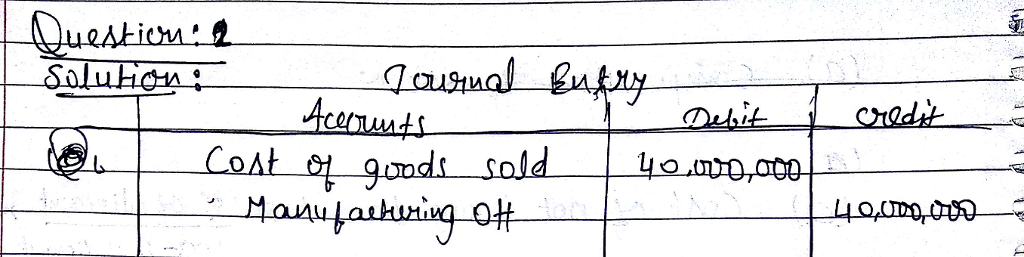 Question: 2
Solution:
Journal Entry
Accounts Debit credit
b Cost of goods sold 40,000,000
Manufacturing OH 40,000,000